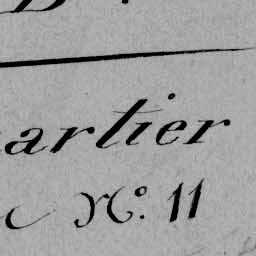 artier
N.º 11